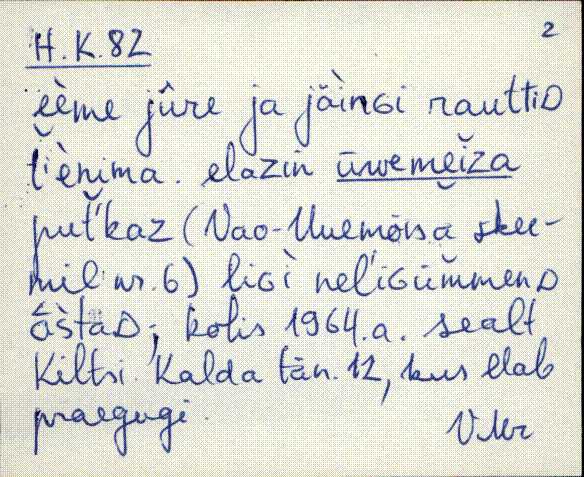 2
H.K.82
èème jûre ja jäìnɢi rauttiᴅ
tìènima. elazin ūwemĕiža
put̆'kaz (Vao-Uuemõisa skee-
mil nr. 6) liɢì nel'iɢümmenᴅ
āštaᴅ; kolis 1964.a. sealt
Kiltsi Kalda tän. 12, kus elab
praegugi.